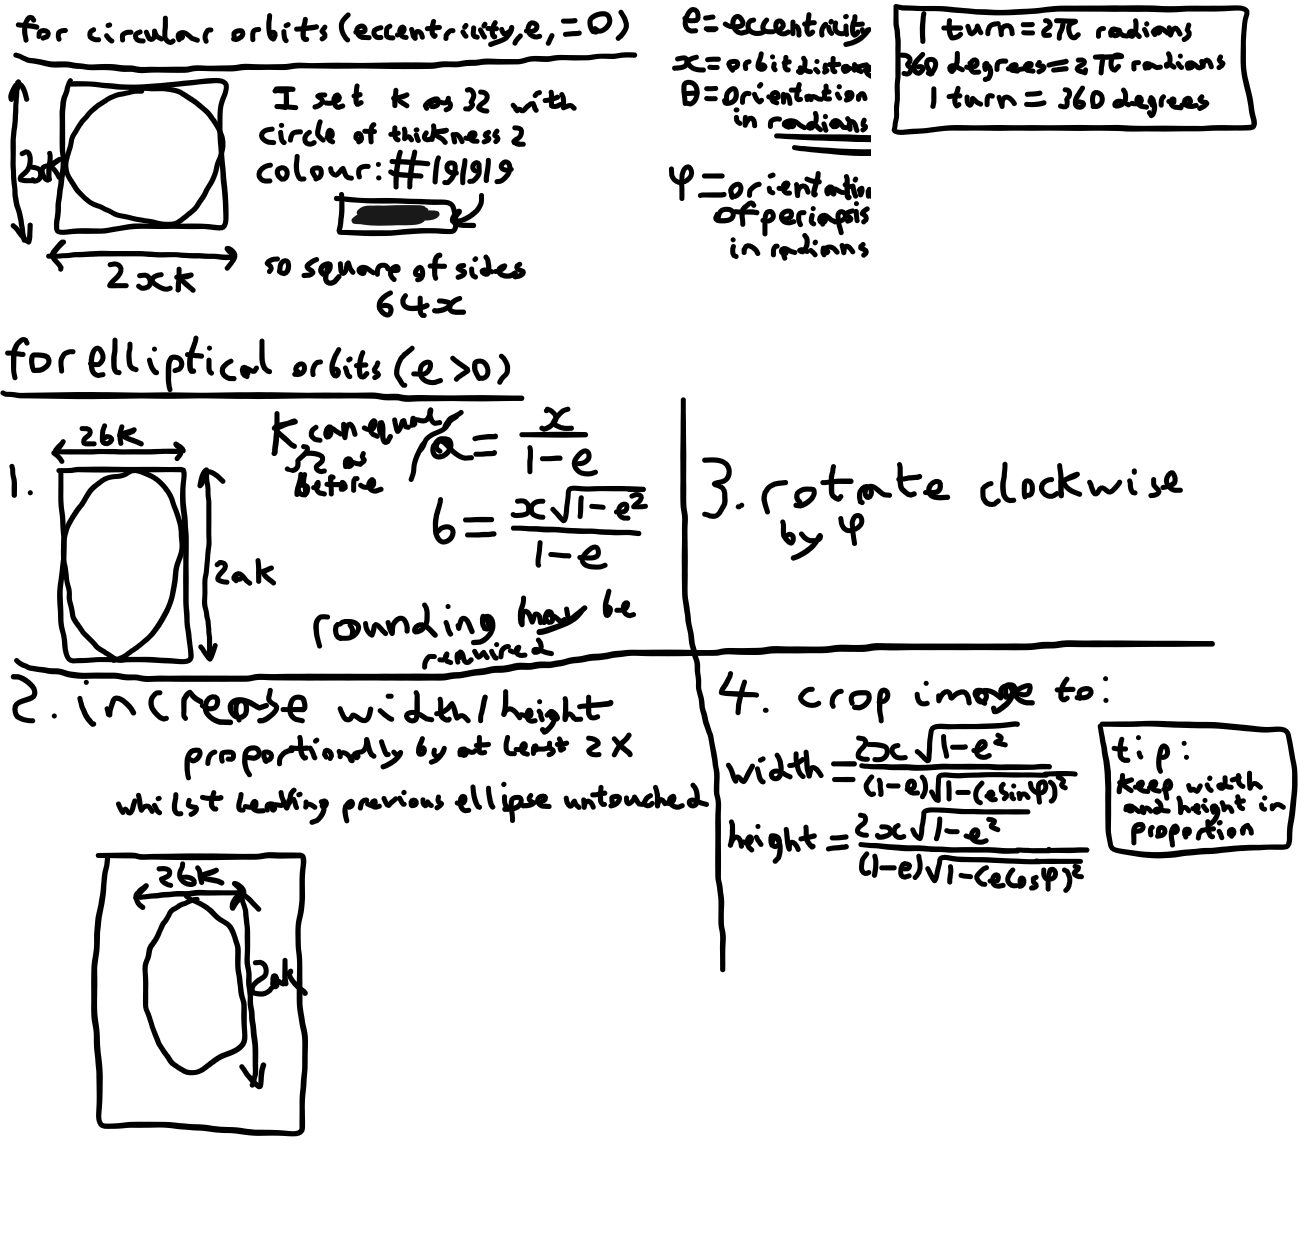 for circular orbits (eccentricity, e, = 0)
2xk
2xk
I set k as 32 with
circle of thickness 2
colour: #191919
so square of sides
64x
e = eccentricity
x = orbit distance
θ = orientation
in radians
φ = orientation
of periapsis
in radians
1 turn = 2π radians
360 degrees = 2π radians
1 turn = 360 degrees
for elliptical orbits (e > 0)
1.
2bk
2ak
K can equal
32 as
before
a = x / 1 - e
b = x√1 - e² / 1 - e
rounding may be
required
2. increase width / height
proportionally by at least 2X
whilst leaving previous ellipse untouched
2bk
2ak
3. rotate clockwise
by φ
4. crop image to:
width = 2x√1 - e² / (1 - e)√1 - (e sin φ)²
height = 2x√1 - e² / (1 - e)√1 - (e cos φ)²
tip:
keep width
and height in
proportion